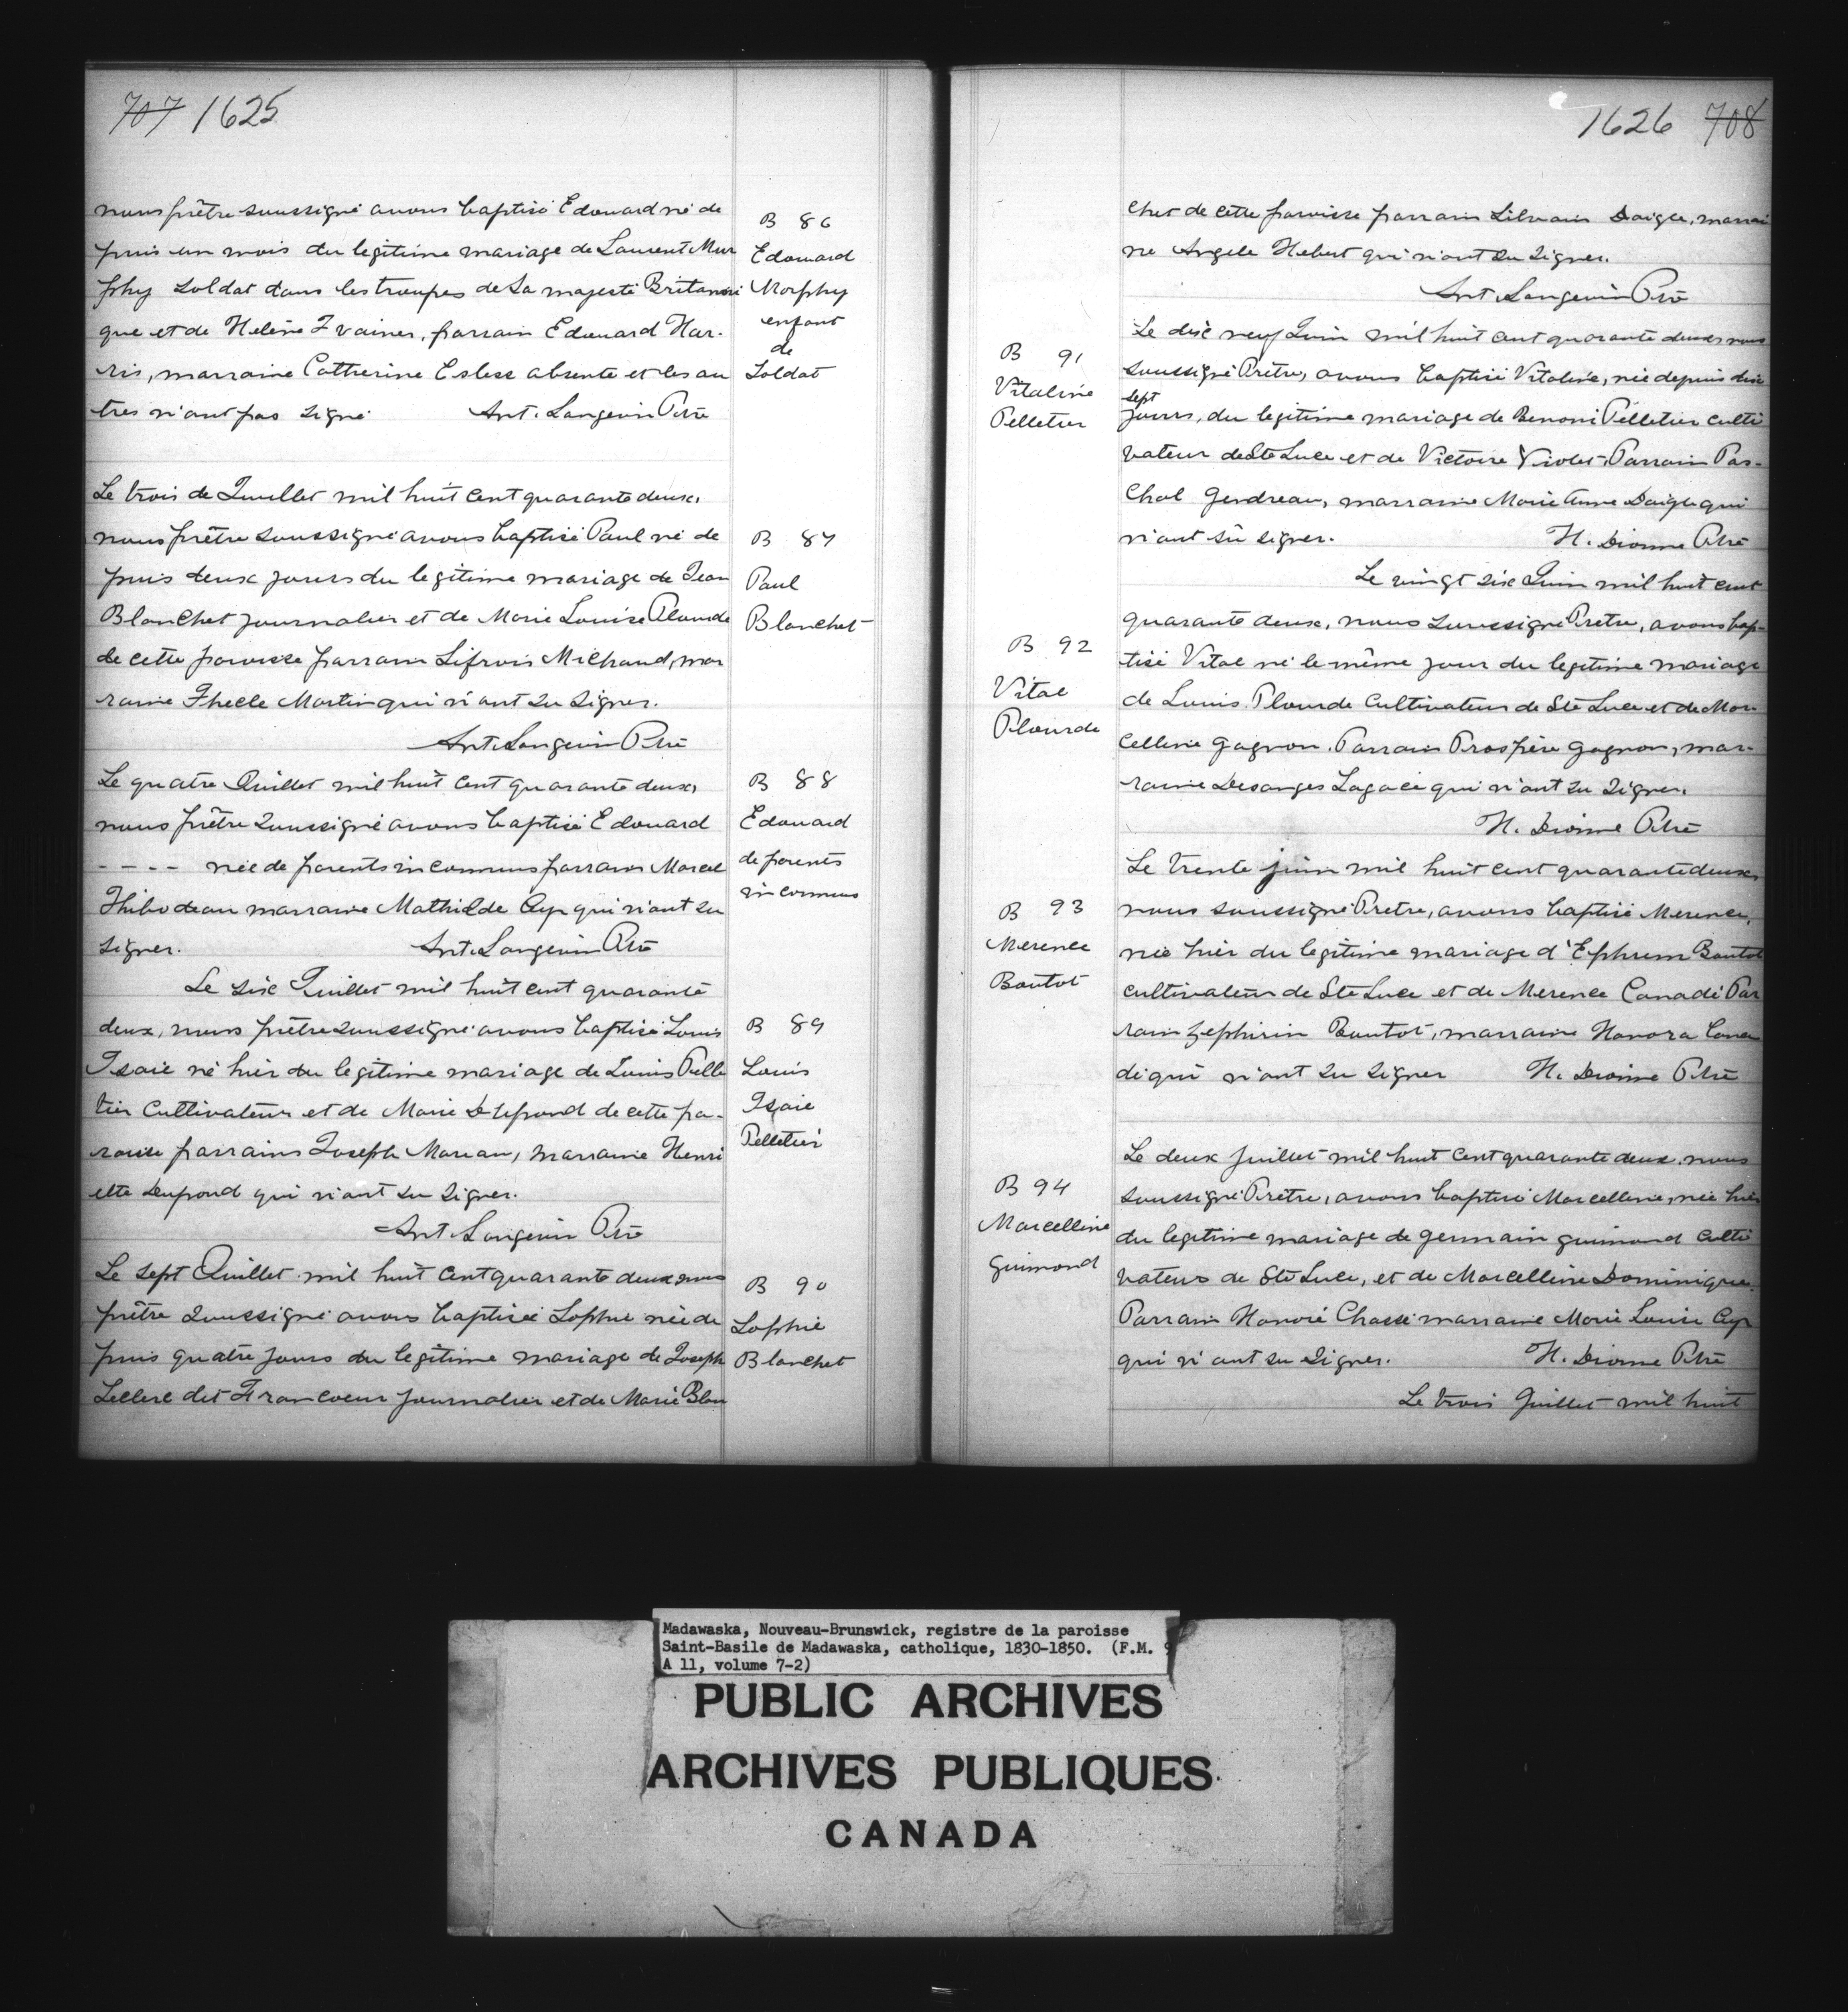 707 1625
nous prêtre soussigné avons baptisé Edouard né de
puis un mois du legitime mariage de Laurent Mur
phy soldat dans les troupes de Sa majesté Britanni
que et de Helène Trainer, parrain Edouard Har-
ris, marraine Catherine absente et les au
tres n'ont pas signé Ant. Langevin Ptre
B 86
Edouard
Morphy
enfant
de
Soldat
Le trois de Juillet mil huit cent quarante deux,
nous prêtre soussigné avons baptisé Paul né de
puis deux jours du legitime mariage de Jean
Blanchet journalier et de Marie Louise Plourde
de cette paroisse parrain Sifrois Michaud, mar
raine Thecle Martin qui n'ont su signer.
Ant. Langevin Ptre
B 87
Paul
Blanchet
Le quatre Juillet mil huit cent quarante deux,
nous prêtre soussigné avons baptisé Edouard
- - - - née de parents inconnus parrain Marcel
Thibodeau marraine Mathilde Cyr qui n'ont su
signer. Ant. Langevin Ptre
B 88
Edouard
de parents
inconnus
Le six Juillet mil huit cent quarante
deux, nous prêtre soussigné avons baptisé Louis
Isaie né hier du legitime mariage de Louis Pelle
tier Cultivateur et de Marie de cette pa-
roisse parrains Joseph Moreau, marraine Henri
ette Dupond qui n'ont su signer.
Ant. Langevin Ptre
B 89
Louis
Isaie
Pelletier
Le sept Juillet mil huit cent quarante deux nous
prêtre soussigné avons baptisée Sophie née de
puis quatre jours du legitime mariage de Joseph
Leclerc dit Francoeur journalier et de Marie Blan
B 90
Sophie
Blanchet
1626 708
chet de cette paroisse parrain Silvain Daigle, marrai
ne Angele Hebert qui n'ont su signer.
Ant. Langevin Ptre
B 91
Vitaline
Pelletier
Le dix neuf Juin mil huit cent quarante deux nous
soussigné Prêtre, avons baptisé Vitaline, née depuis dix
sept
jours, du legitime mariage de Benoni Pelletier culti
vateur de Ste Luce et de Victoire Violet, Parrain Pas-
chal Gendreau, marraine Marie Anne Daigle qui
n'ont sû signer. H. Dionne Ptre
B 92
Vital
Plourde
Le vingt six Juin mil huit cent
quarante deux, nous soussigné Pretre, avons bap-
tisé Vital né le même jour du legitime mariage
de Louis Plourde Cultivateur de Ste Luce et de Mar
celline Gagnon. Parrain Prospère Gagnon, mar-
raine Desanges Lagacé qui n'ont su signer.
H. Dionne Ptre
B 93
Merence
Boutot
Le trente juin mil huit cent quarante deux,
nous soussigné Pretre, avons baptisé Merence,
née hier du legitime mariage d'Ephrem Boutot
cultivateur de Ste Luce et de Merence Canadé Par
rain Zephirin Boutot, marraine Honora Cana
dé qui n'ont su signer H. Dionne Ptre
B 94
Marcelline
Guimond
Le deux juillet mil huit cent quarante deux, nous
soussigné Prêtre, avons baptisé Marcelline, née hier
du legitime mariage de Germain Guimond Culti
vateur de Ste Luce, et de Marcelline Dominique.
Parrain Honoré Chassé marraine Marie Louise Cyr
qui n'ont su signer. H. Dionne Ptre
Le trois Juillet mil huit
Madawaska, Nouveau-Brunswick, registre de la paroisse
Saint-Basile de Madawaska, catholique, 1830-1850. (F.M. 9
A 11, volume 7-2)
PUBLIC ARCHIVES
ARCHIVES PUBLIQUES
CANADA